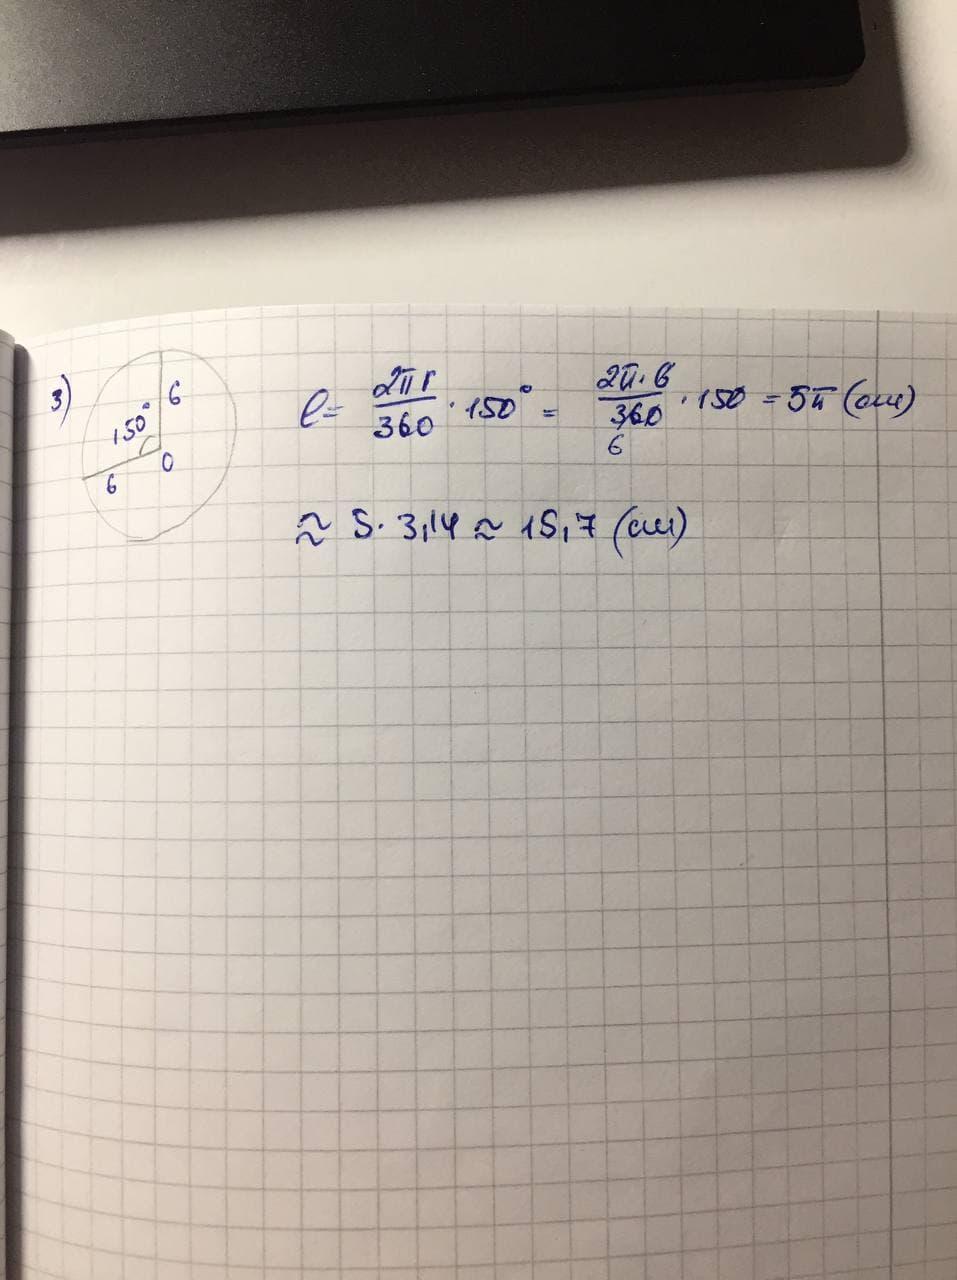 3)
6
150°
0
6
l = 2πr/360 · 150° = 2π·6/360 · 150 = 5π (см)
6
≈ 5 · 3,14 ≈ 15,7 (см)